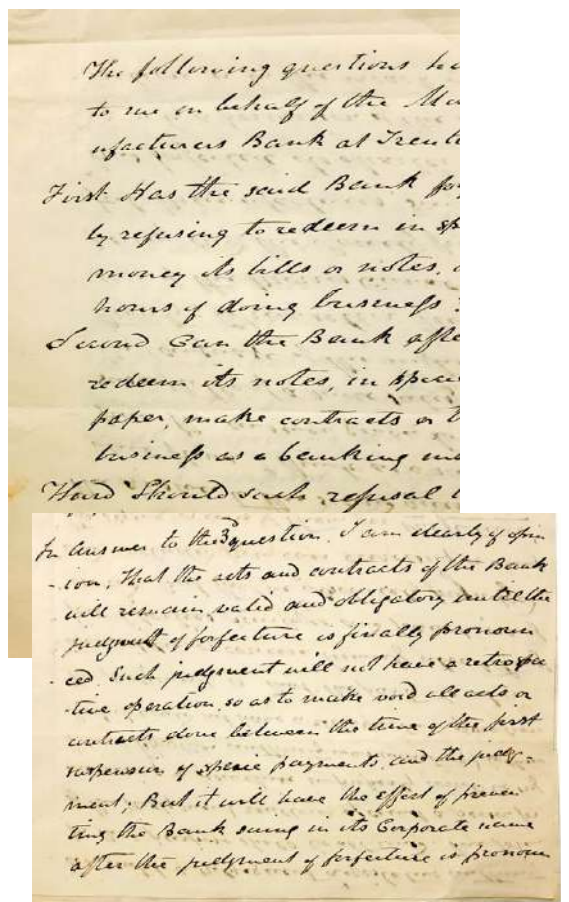 The following questions ha
to me on behalf of the Me
ufacturers Bank at Trento
First Has the said Bank for
by refusing to redeem in sp
money its bills or notes,
hours of doing business
Second Can the Bank afte
redeem its notes, in specie
paper, make contracts or t
business as a banking in
Third Should such refusal
In answer to the 3d question. I am clearly of opin
-ion, That the acts and contracts of the Bank
will remain valid and obligatory until the
judgment of forfeiture is finally pronoun
-ced. Such judgment will not have a retrospec
-tive operation, so as to make void all acts or
contracts done between the time of the first
suspension of specie payments, and the judg-
ment; But it will have the effect of preven
ting the Bank suing in its Corporate name
after the judgment of forfeiture is pronoun